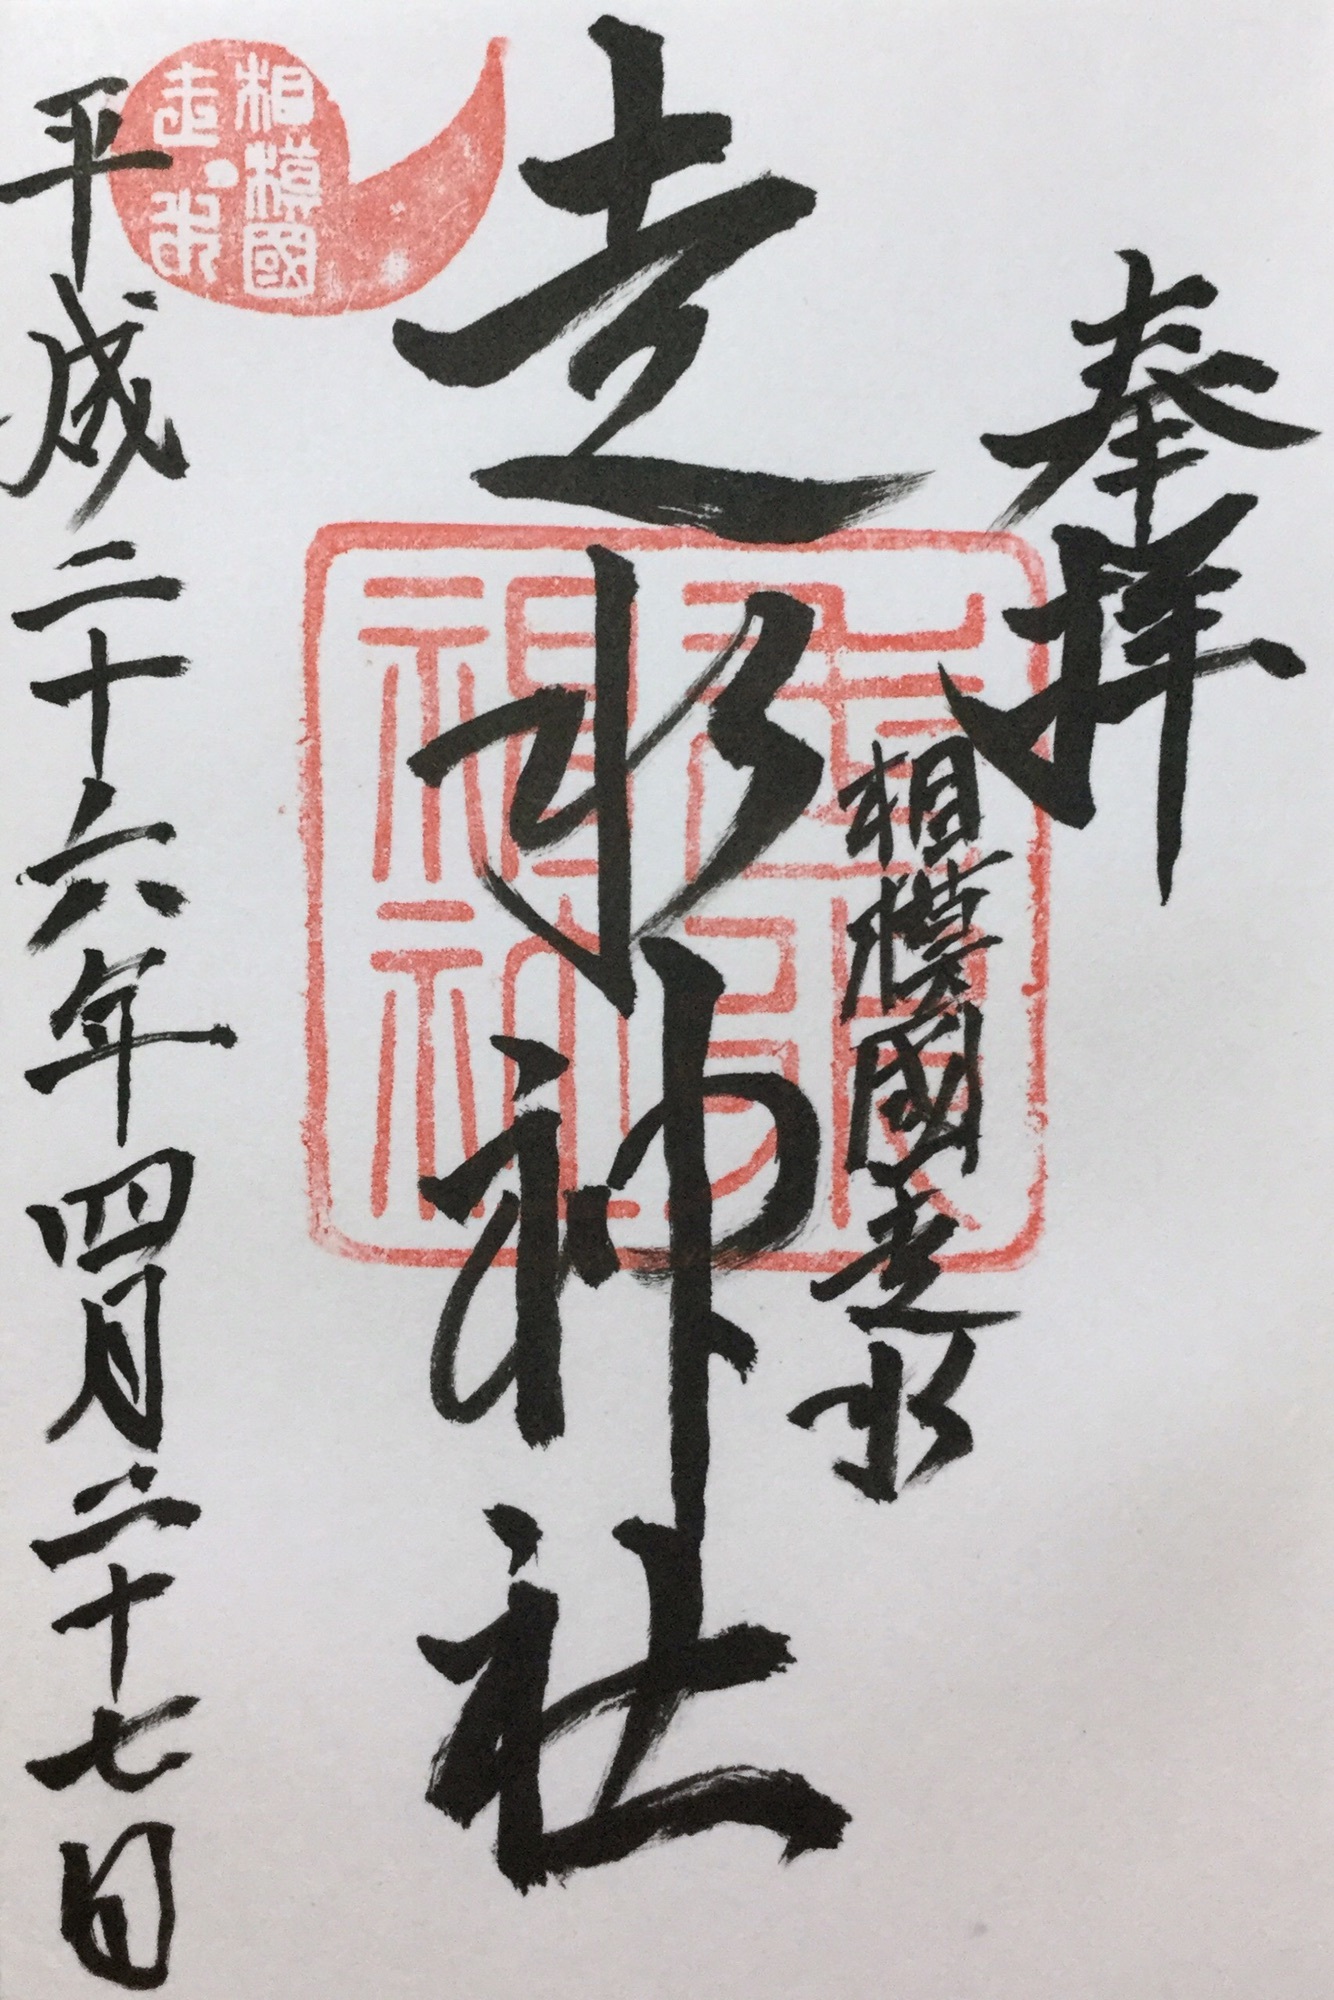 奉拝
相模國走水
走水神社
相模國
走水
走水
神社
平成二十六年四月二十七日